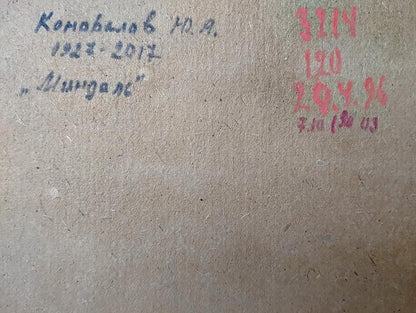 Коновалов Ю.А.
1927-2017
„Миндаль"
3214
120
20.4.94